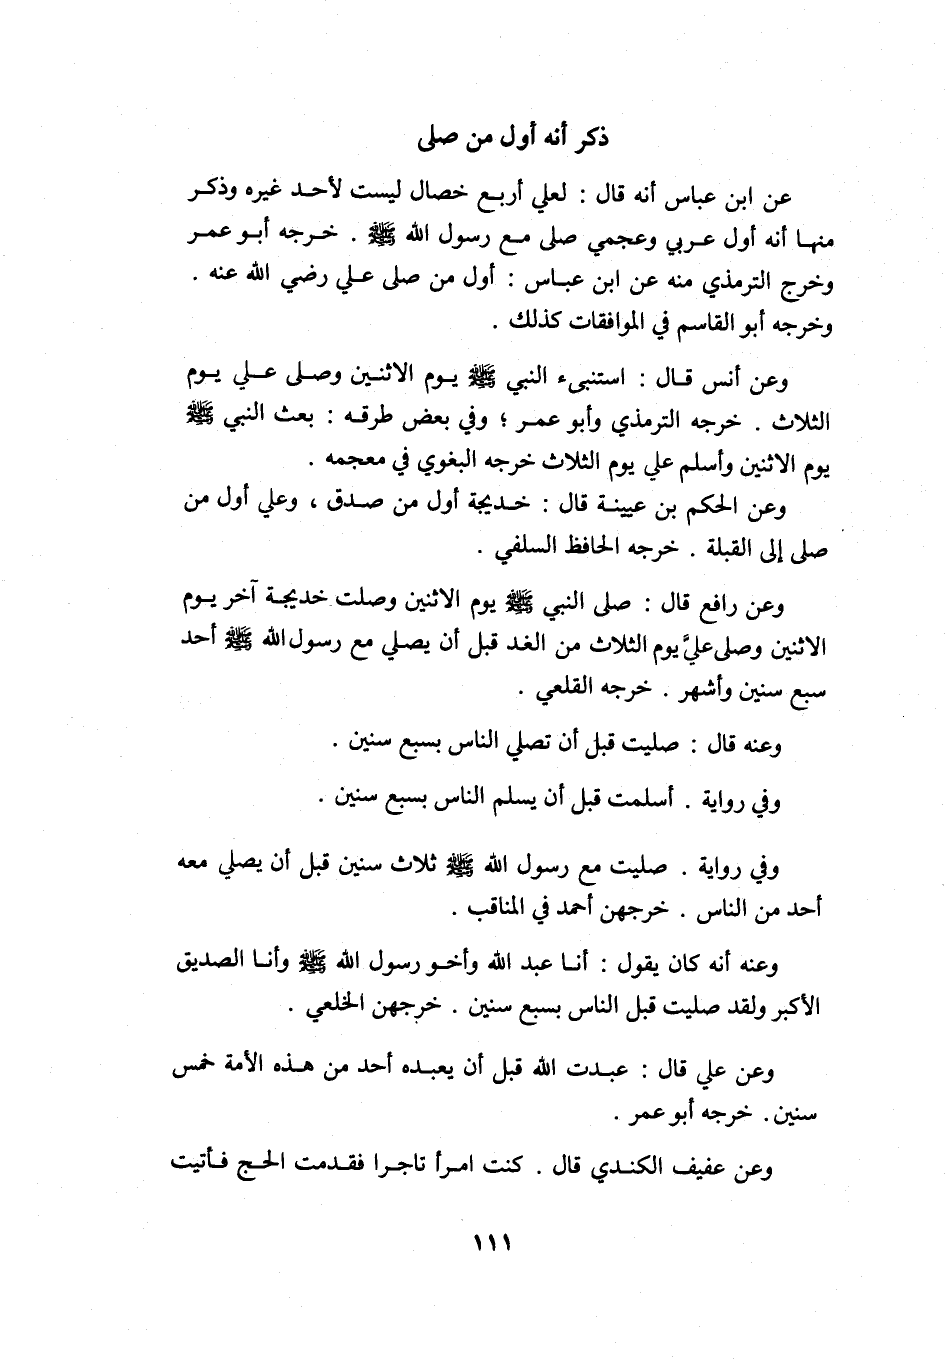 ذكر أنه أول من صلى
عن ابن عباس أنه قال : لعلي أربع خصال ليست لأحد غيره وذكر
منها أنه أول عربي وعجمي صلى مع رسول الله ﷺ . خرجه أبو عمر
وخرج الترمذي منه عن ابن عباس : أول من صلى علي رضي الله عنه .
وخرجه أبو القاسم في الموافقات كذلك .
وعن أنس قال : استنبىء النبي ﷺ يوم الاثنين وصلى علي يوم
الثلاث . خرجه الترمذي وأبو عمر ؛ وفي بعض طرقه : بعث النبي ﷺ
يوم الاثنين وأسلم علي يوم الثلاث خرجه البغوي في معجمه .
وعن الحكم بن عيينة قال : خديجة أول من صدق ، وعلي أول من
صلى إلى القبلة . خرجه الحافظ السلفي .
وعن رافع قال : صلى النبي ﷺ يوم الاثنين وصلت خديجة آخر يوم
الاثنين وصلى عليَّ يوم الثلاث من الغد قبل أن يصلي مع رسول الله ﷺ أحد
سبع سنين وأشهر . خرجه القلعي .
وعنه قال : صليت قبل أن تصلي الناس بسبع سنين .
وفي رواية . أسلمت قبل أن يسلم الناس بسبع سنين .
وفي رواية . صليت مع رسول الله ﷺ ثلاث سنين قبل أن يصلي معه
أحد من الناس . خرجهن أحمد في المناقب .
وعنه أنه كان يقول : أنا عبد الله وأخو رسول الله ﷺ وأنا الصديق
الأكبر ولقد صليت قبل الناس بسبع سنين . خرجهن الخلعي .
وعن علي قال : عبدت الله قبل أن يعبده أحد من هذه الأمة خمس
سنين . خرجه أبو عمر .
وعن عفيف الكندي قال . كنت امرأ تاجرا فقدمت الحج فأتيت
١١١